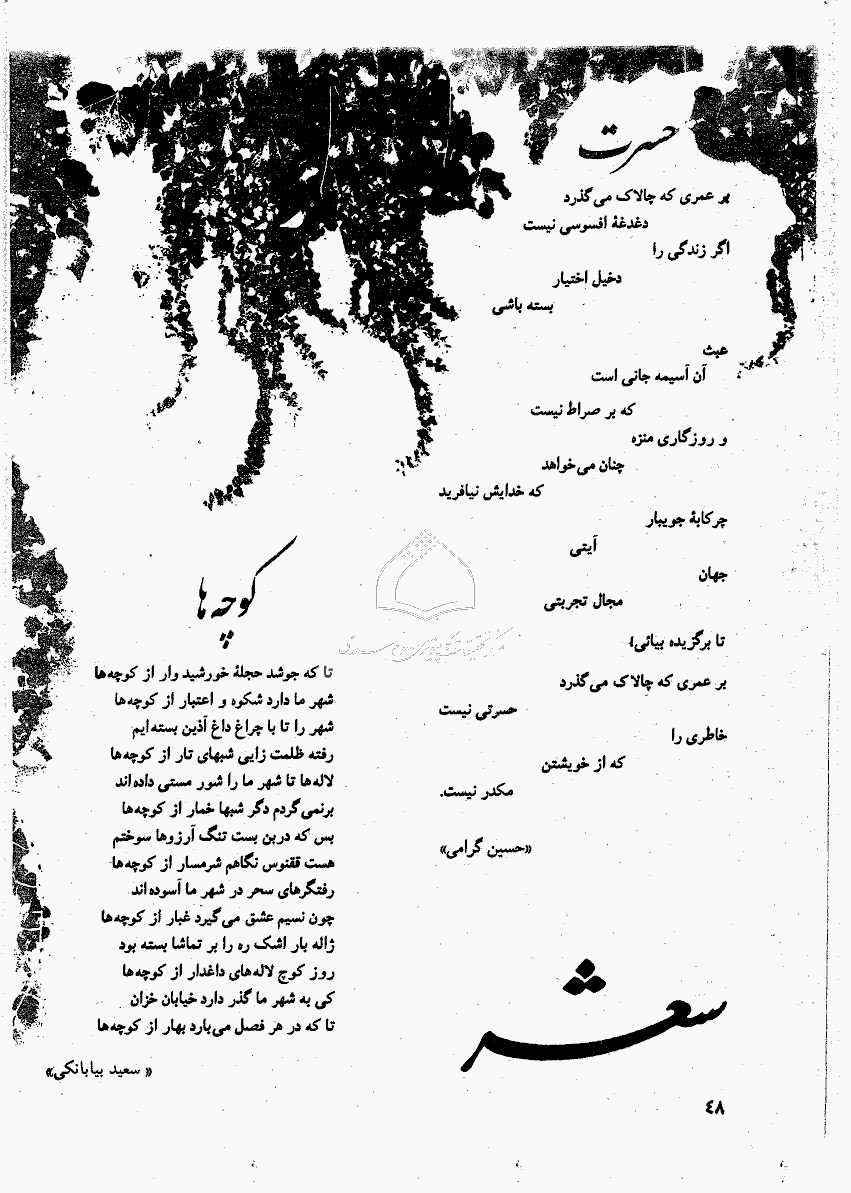 حسرت
بر عمری که چالاک می‌گذرد
دغدغهٔ افسوسی نیست
اگر زندگی را
دخیل اختیار
بسته باشی
عبث
آن آسیمه جانی است
که بر صراط نیست
و روزگاری منزه
چنان می‌خواهد
که خدایش نیافرید
چرکابهٔ جویبار
آیتی
جهان
مجال تجربتی
تا برگزیده بیائی!
بر عمری که چالاک می‌گذرد
حسرتی نیست
خاطری را
که از خویشتن
مکدر نیست.
«حسین گرامی»
کوچه‌ها
تا که جوشد حجلهٔ خورشید وار از کوچه‌ها
شهر ما دارد شکوه و اعتبار از کوچه‌ها
شهر را تا با چراغ داغ آذین بسته‌ایم
رفته ظلمت زایی شبهای تار از کوچه‌ها
لاله‌ها تا شهر ما را شور مستی داده‌اند
برنمی‌گردم دگر شبها خمار از کوچه‌ها
بس که در بن بست تنگ آرزوها سوختم
هست ققنوس نگاهم شرمسار از کوچه‌ها
رفتگرهای سحر در شهر ما آسوده‌اند
چون نسیم عشق می‌گیرد غبار از کوچه‌ها
ژاله بار اشک ره را بر تماشا بسته بود
روز کوچ لاله‌های داغدار از کوچه‌ها
کی به شهر ما گذر دارد خیابان خزان
تا که در هر فصل می‌بارد بهار از کوچه‌ها
« سعید بیابانکی»
شعر
٤٨